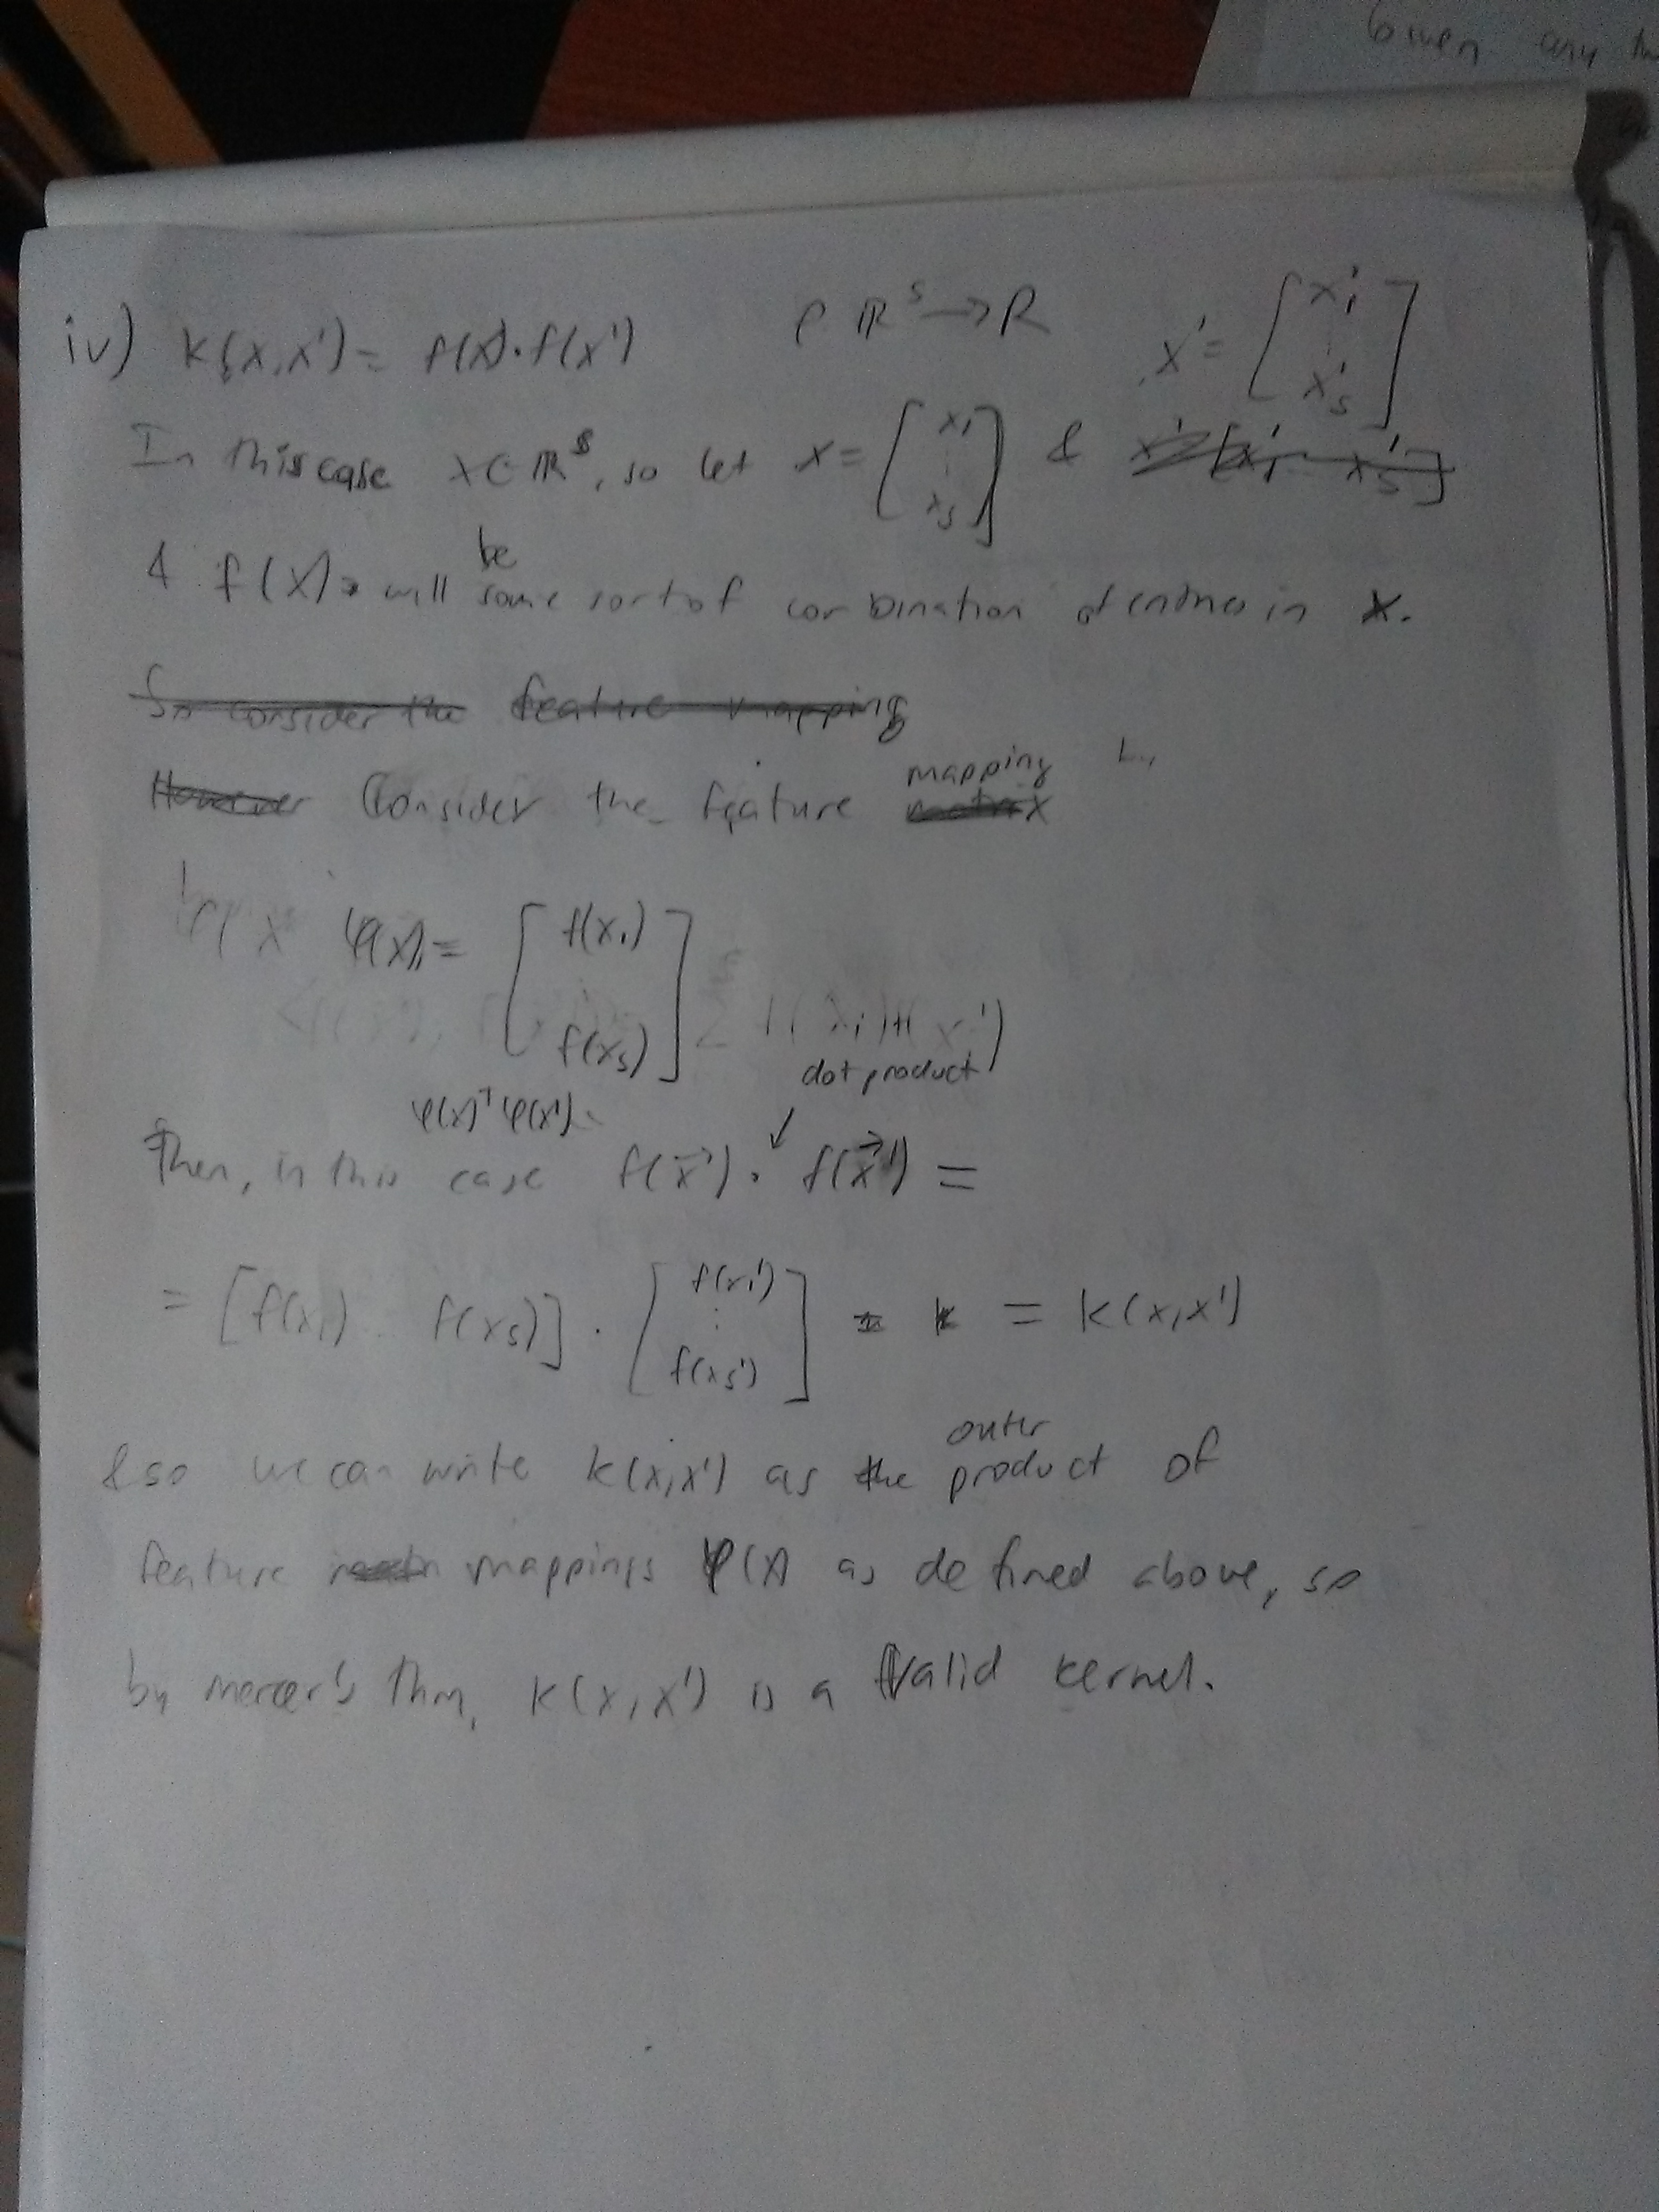 Given any
iv) K(x,x') = f(x)·f(x') f ℝ^s → R , x' = [x'_1 ⋮ x'_s]
In this case x ∈ ℝ^s, so let x = [x_1 ⋮ x_s] & x' = [x'_1 ... x'_s]
& f(x) will be some sort of combination of entries in x.
So consider the feature mapping
However Consider the feature mapping matrix
φ(x) = [f(x_1) ⋮ f(x_s)]
dot product
φ(x)^T φ(x')
Then, in this case f(x⃗) · f(x⃗') =
= [f(x_1) .. f(x_s)] · [f(x_1') ⋮ f(x_s')] = k = k(x,x')
& so we can write k(x,x') as the outer product of
feature mappings φ(x) as defined above, so
by mercer's thm, k(x,x') is a Valid kernel.